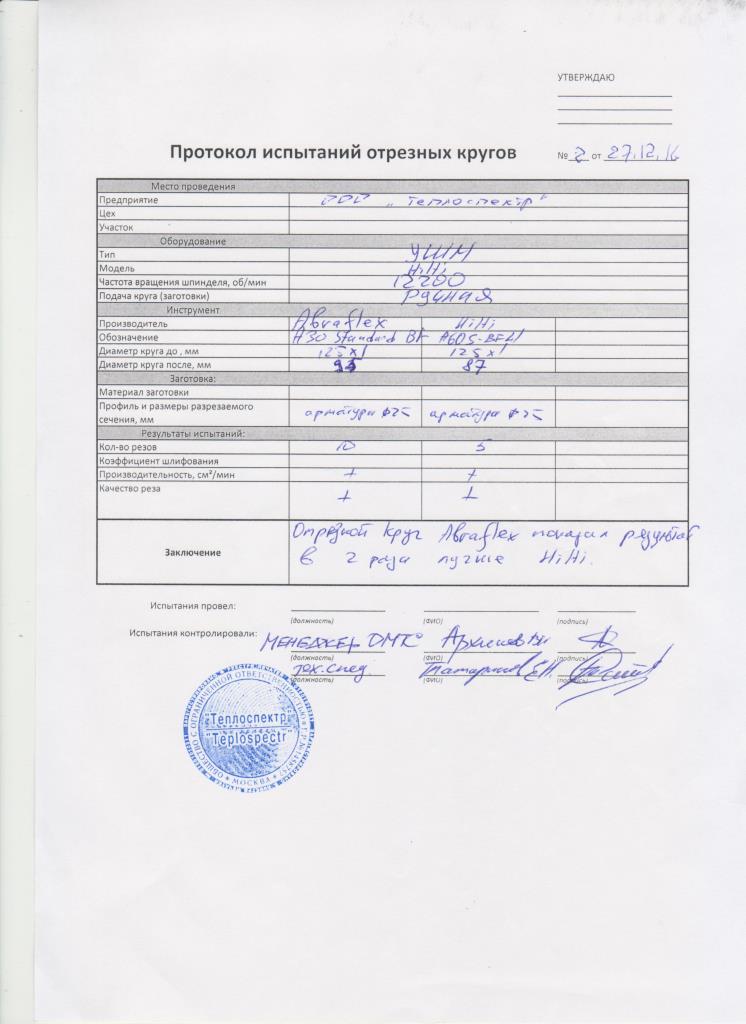 УТВЕРЖДАЮ
Протокол испытаний отрезных кругов
№ 2 от 27.12.16
Место проведения
Предприятие ООО "Теплоспектр"
Цех
Участок
Оборудование
Тип УШМ
Модель HiHi
Частота вращения шпинделя, об/мин 12200
Подача круга (заготовки) Ручная
Инструмент
Производитель Abraflex HiHi
Обозначение A30 Standard BF A60S-BF41
Диаметр круга до , мм 125x1 125x1
Диаметр круга после, мм 93 87
Заготовка:
Материал заготовки
Профиль и размеры разрезаемого сечения, мм арматура ф25 арматура ф25
Результаты испытаний:
Кол-во резов 10 5
Коэффициент шлифования
Производительность, см²/мин + +
Качество реза + +
Заключение
Отрезной круг Abraflex показал результат
в 2 раза лучше HiHi.
Испытания провел:
(должность) (ФИО) (подпись)
Испытания контролировали: МЕНЕДЖЕР ОМТС
(должность) (ФИО) (подпись)
тех.спец.
(должность) (ФИО) (подпись)
ОБЩЕСТВО С ОГРАНИЧЕННОЙ ОТВЕТСТВЕННОСТЬЮ
"Теплоспектр"
"Teplospectr"
МОСКВА